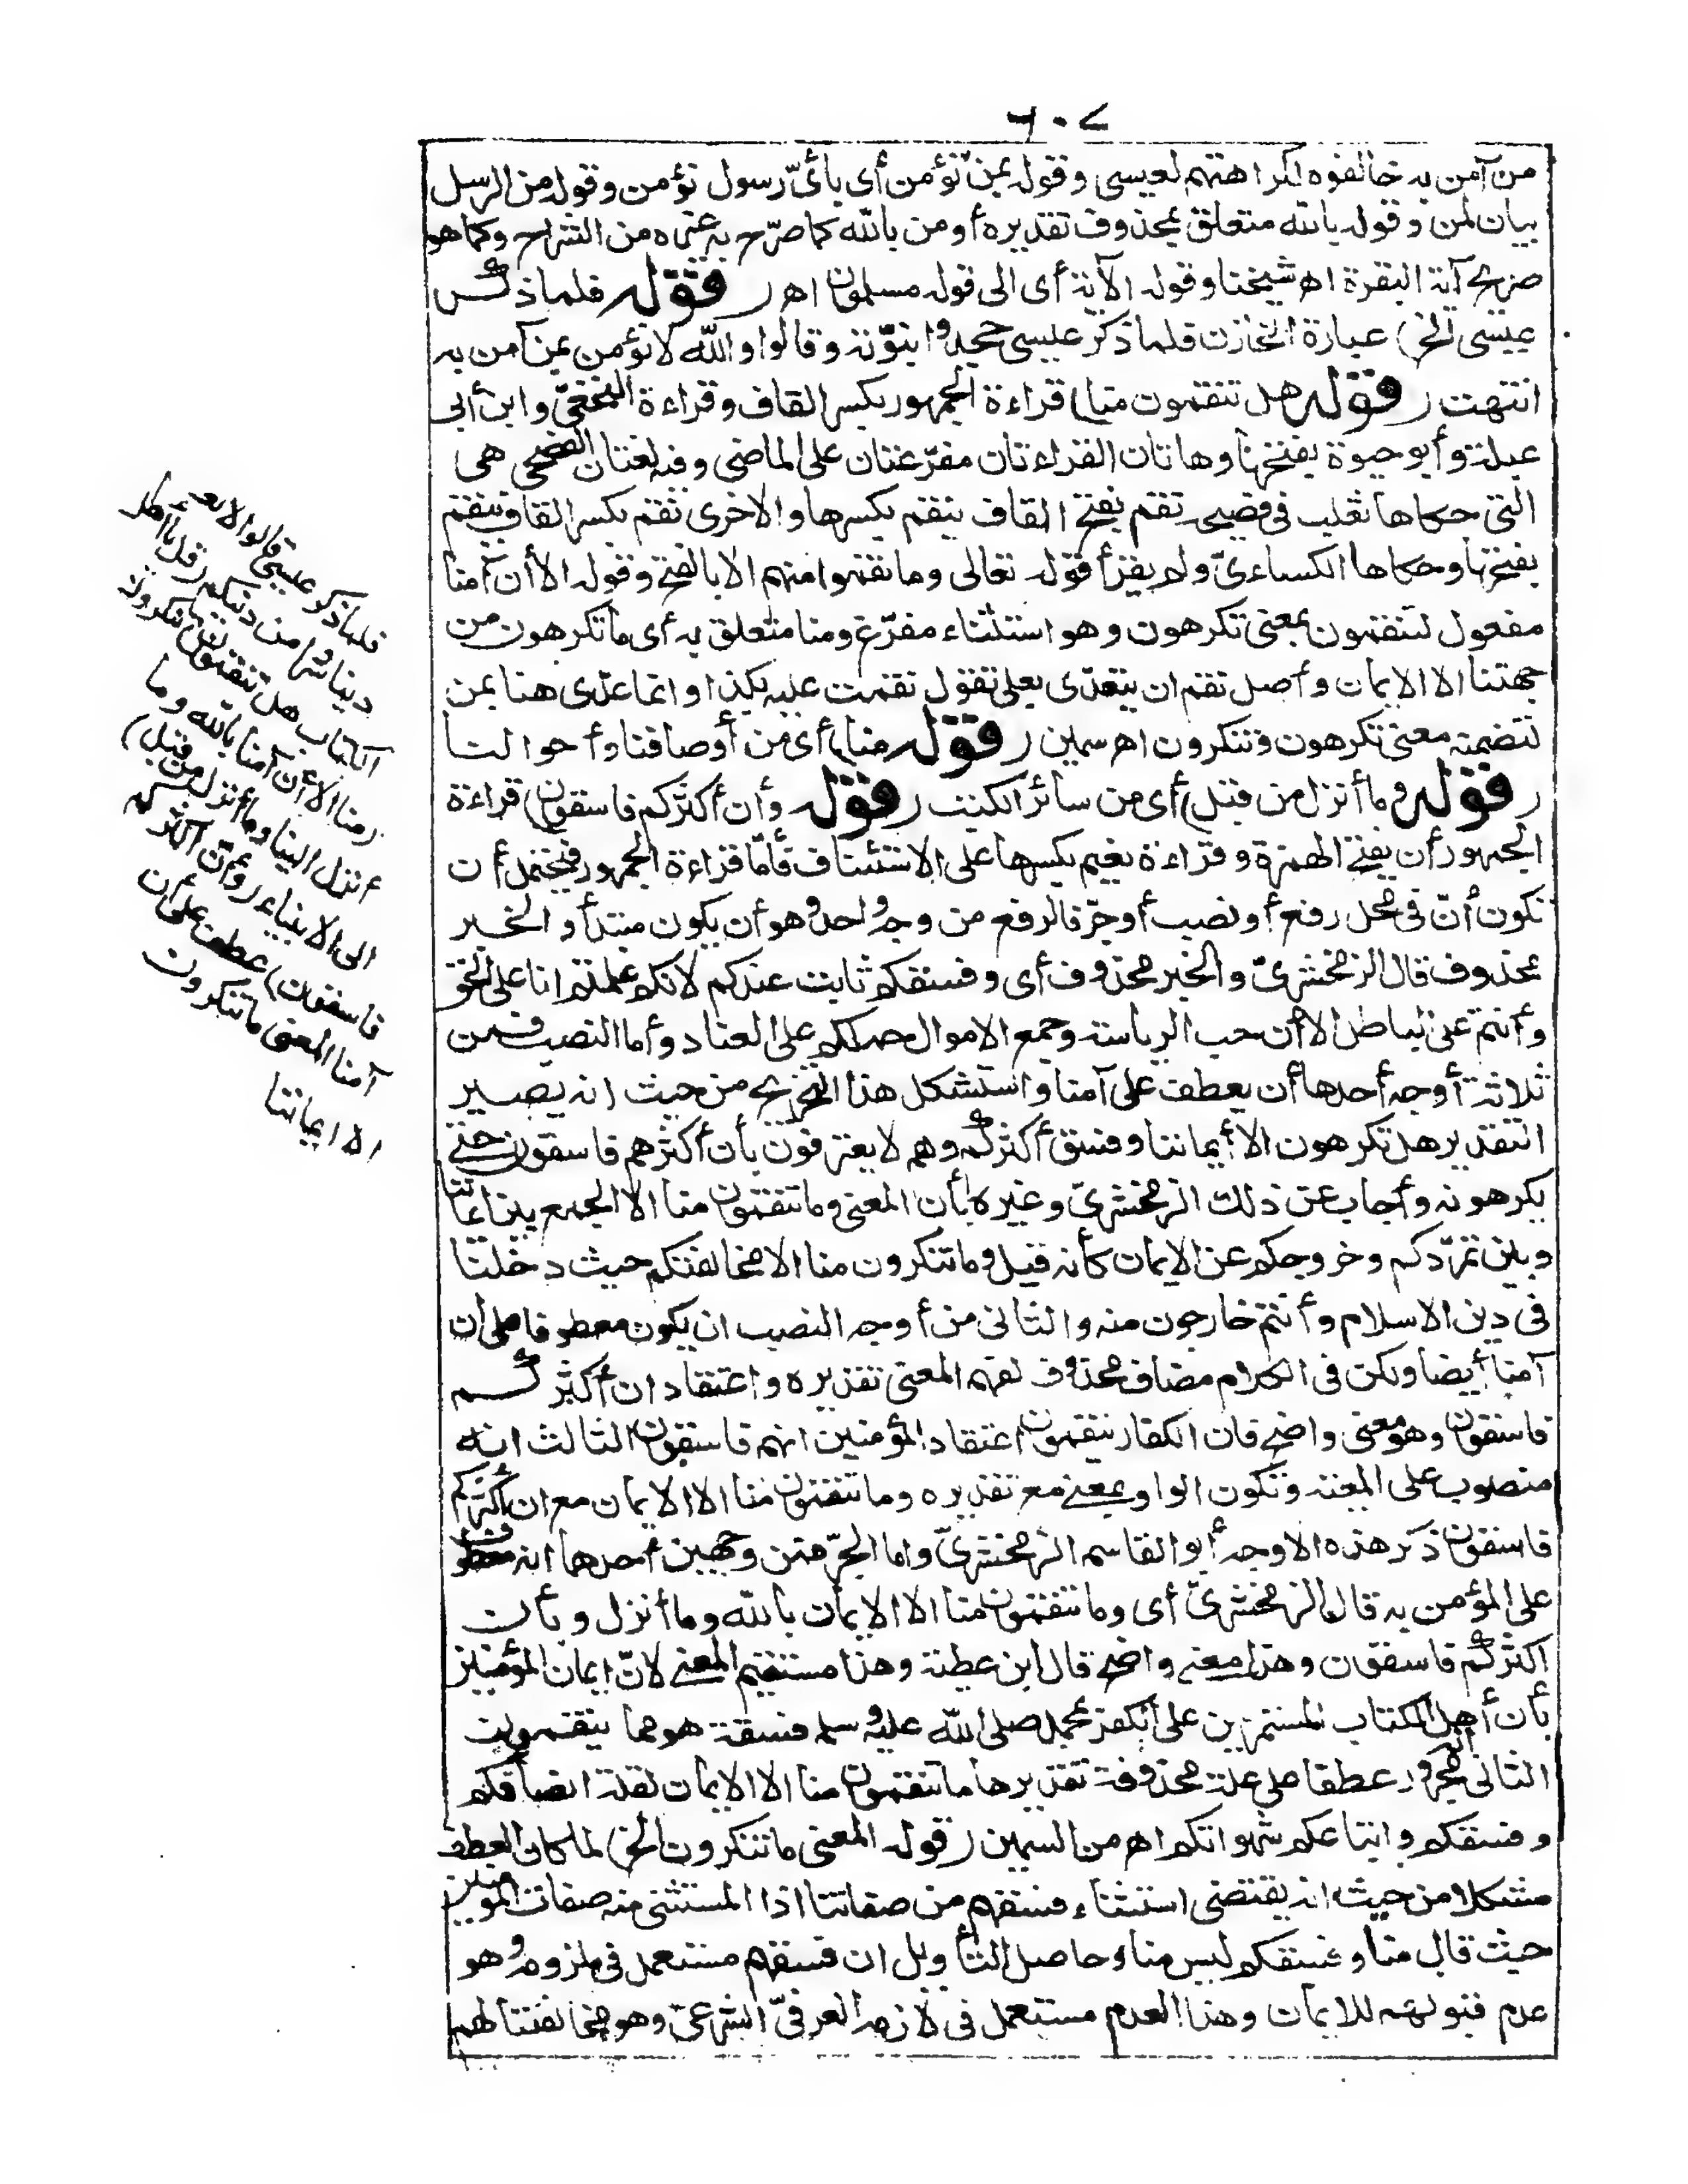 ٦٠٧
من آمن به خالفوه لكراهتهم لعيسى وقوله بمن نؤمن أى بأىّ رسول نؤمن وقوله من الرسل
بيان لمن وقوله بالله متعلق بمحذوف تقديره أومن بالله كما صرّح به غيره من الشراح وكما هو
صريح آية البقرة اهـ شيخنا وقوله الآية أى الى قوله مسلمون اهـ (قوله فلما ذكر
عيسى الخ) عبارة الخازن فلما ذكر عيسى جحدوا نبوّته وقالوا والله لا نؤمن بمن آمن به
انتهت (قوله هل تنقمون منا) قراءة الجمهور بكسر القاف وقراءة النخعىّ وابن أبى
عبلة وأبو حيوة بفتحها وهاتان القراءتان مفرّعتان على الماضى وفيه لغتان الفصحى هى
التى حكاها ثعلب فى فصيحه نقم بفتح القاف ينقم بكسرها والاخرى نقم بكسر القاف ينقم
بفتحها وحكاها الكساءىّ ولم يقرأ قوله تعالى وما نقموا منهم الا بالفتح وقوله الا أن آمنا
مفعول لتنقمون بمعنى تكرهون وهو استثناء مفرّغ ومنا متعلق به أى ما تكرهون من
جهتنا الا الايمان وأصل نقم ان يتعدّى بعلى تقول نقمت عليه بكذا وانما عدّى هنا بمن
لتضمنه معنى تكرهون وتنكرون اهـ سمين (قوله منا) أى من أوصافنا وأحوالنا
(قوله وما أنزل من قبل) أى من سائر الكتب (قوله وأن أكثركم فاسقون) قراءة
الجمهور أن بفتح الهمزة وقراءة نعيم بكسرها على الاستئناف فأمّا قراءة الجمهور فيحتمل أن
تكون أنّ فى محل رفع أو نصب أو جرّ فالرفع من وجه واحد وهو أن يكون مبتدأ والخبر
محذوف قال الزمخشرىّ والخبر محذوف أى وفسقكم ثابت عندكم لانكم علمتم انا على الحق
وأنتم على الباطل الا أن حب الرياسة وجمع الاموال حملكم على العناد وأما النصب فمن
ثلاثة أوجه أحدها أن يعطف على آمنا واستشكل هذا التخريج من حيث انه يصير
التقدير هل تكرهون الا أيماننا وفسق أكثركم وهم لا يعترفون بأن أكثرهم فاسقون حتى
يكرهونه وأجاب عن ذلك الزمخشرىّ وغيره بأن المعنى وما تنقمون منا الا الجمع بين ايماننا
وبين تمرّدكم وخروجكم عن الايمان كأنه قيل وما تنكرون منا الا مخالفتكم حيث دخلنا
فى دين الاسلام وأنتم خارجون منه والثانى من أوجه النصب ان يكون معطوفا على ان
آمنا أيضا ولكن فى الكلام مضاف محذوف لفهم المعنى تقديره واعتقاد ان أكثركم
فاسقون وهو معنى واضح فان الكفار ينقمون اعتقاد المؤمنين انهم فاسقون الثالث انه
منصوب على المعية وتكون الواو بمعنى مع تقديره وما تنقمون منا الا الايمان مع ان أكثركم
فاسقون ذكر هذه الاوجه أبو القاسم الزمخشرىّ واما الجرّ فمن وجهين أحدهما انه معطوف
على المؤمن به قال الزمخشرىّ أى وما تنقمون منا الا الايمان بالله وما أنزل وبأن
أكثركم فاسقون وهذا معنى واضح قال ابن عطية وهذا مستقيم المعنى لانّ ايمان المؤمنين
بأن أهل الكتاب المستمرين على الكفر بمحمد صلى الله عليه وسلم فسقة هو مما ينقمونه
الثانى انه مجرور عطفا على علة محذوفة تقديرها ما تنقمون منا الا الايمان لقلة انصافكم
وفسقكم واتباعكم شهواتكم اهـ من السمين (قوله المعنى ما تنكرون الخ) لما كان العطف
مشكلا من حيث انه يقتضى استثناء فسقهم من صفاتنا اذا المستثنى منه صفات المؤمنين
حيث قال منا وفسقكم ليس منا وحاصل التأويل ان فسقهم مستعمل فى ملزومه وهو
عدم قبولهم للايمان وهذا العدم مستعمل فى لازمه العرفىّ الشرعىّ وهو مخالفتنا لهم
فلما ذكر عيسى قالوا لا نعلم
دينا شرا من دينكم (قل يا أهل
الكتاب هل تنقمون) تنكرون
(منا الا أن آمنا بالله وما
أنزل الينا وما أنزل من قبل)
الى الانبياء (وأنّ أكثركم
فاسقون) عطف على أن
آمنا المعنى ما تنكرون
الا ايماننا